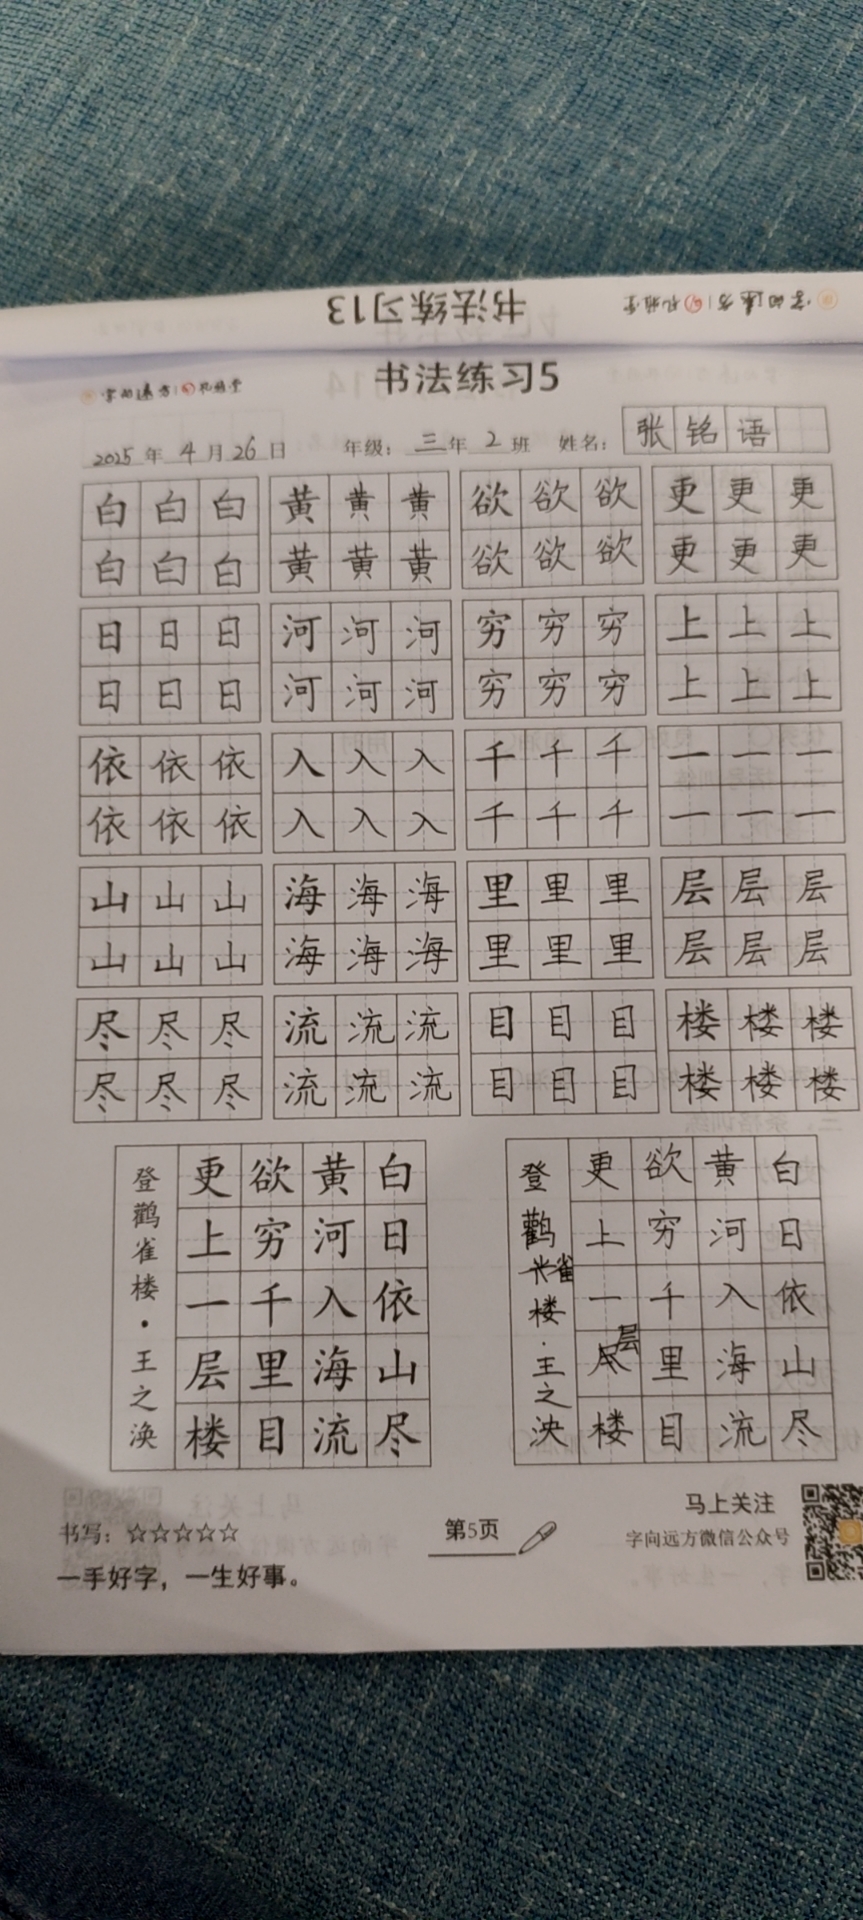 书法练习13
字向远方 | 孔府堂
字向远方 | 孔府堂
书法练习5
2025年4月26日 年级：三年2班 姓名：张铭语
白白白 黄黄黄 欲欲欲 更更更
白白白 黄黄黄 欲欲欲 更更更
日日日 河河河 穷穷穷 上上上
日日日 河河河 穷穷穷 上上上
依依依 入入入 千千千 一一一
依依依 入入入 千千千 一一一
山山山 海海海 里里里 层层层
山山山 海海海 里里里 层层层
尽尽尽 流流流 目目目 楼楼楼
尽尽尽 流流流 目目目 楼楼楼
白日依山尽
黄河入海流
欲穷千里目
更上一层楼
登鹳雀楼·王之涣
白日依山尽
黄河入海流
欲穷千里目
更上一层楼
登鹳雀楼·王之泱
书写：☆☆☆☆☆
一手好字，一生好事。
第5页
马上关注
字向远方微信公众号